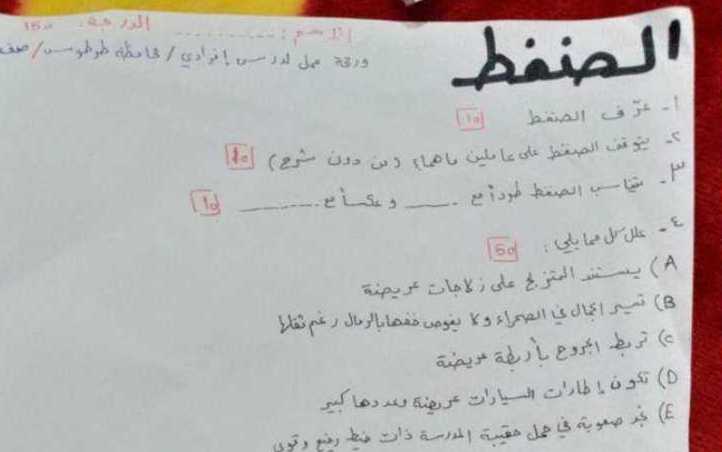 الاسم: ............ الدرجة: 150
ورقة عمل لدرس إفرادي / محافظة طرطوس / صف
الضغط
1- عرّف الضغط 10
2- يتوقف الضغط على عاملين ماهما؟ (من دون شرح) 10
3- يتناسب الضغط طرداً مع ........ و عكساً مع ........ 10
4- علل كل مما يلي: 50
A) يستند المتزلج على زلاجات عريضة
B) تسير الجمال في الصحراء ولا يغوص خفها بالرمال رغم ثقلها
C) تربط الجروح بأربطة عريضة
D) تكون إطارات السيارات عريضة وعددها كبير
E) نجد صعوبة في حمل حقيبة المدرسة ذات خيط رفيع وقوي